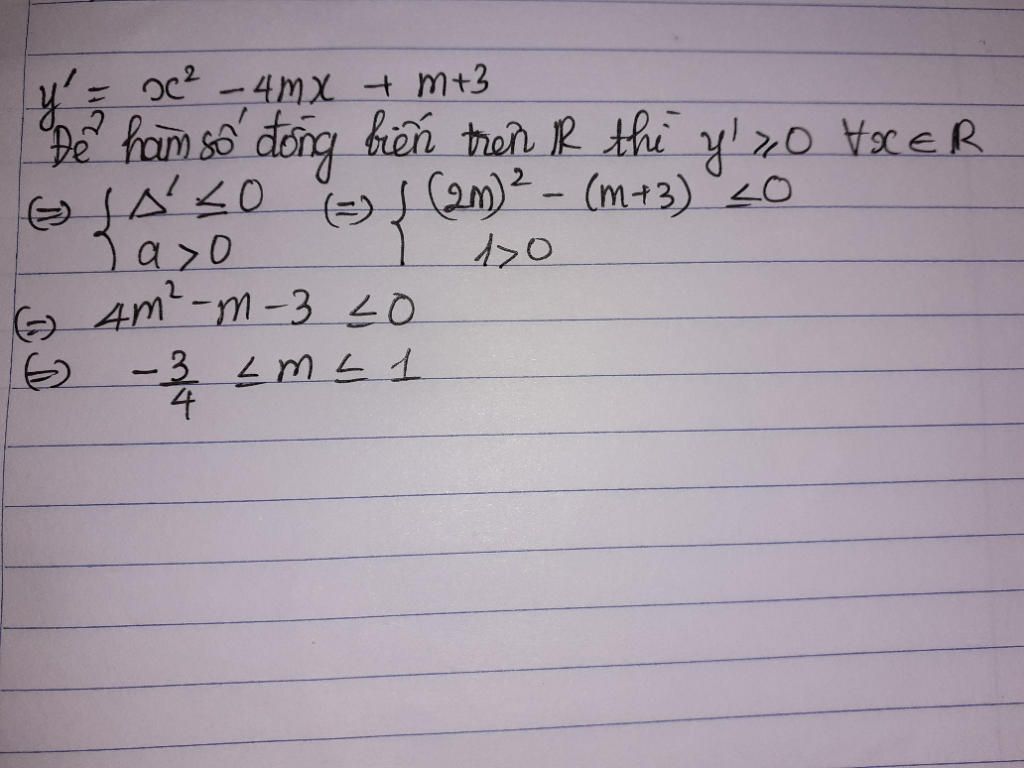 y' = x² - 4mx + m+3
Để hàm số đồng biến trên R thì y' ≥ 0 ∀x ∈ R
(=) { Δ' ≤ 0 (=) { (2m)² - (m+3) ≤ 0
a > 0 1 > 0
(=) 4m² - m - 3 ≤ 0
(=) -3/4 ≤ m ≤ 1